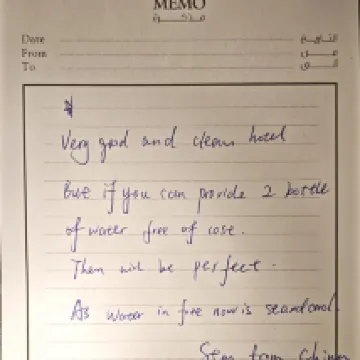 MEMO
مذكرة
Date التاريخ
From من
To الى
Very good and clean hotel
But if you can provide 2 bottle
of water free of cost.
Then will be perfect.
As water in free now is
from